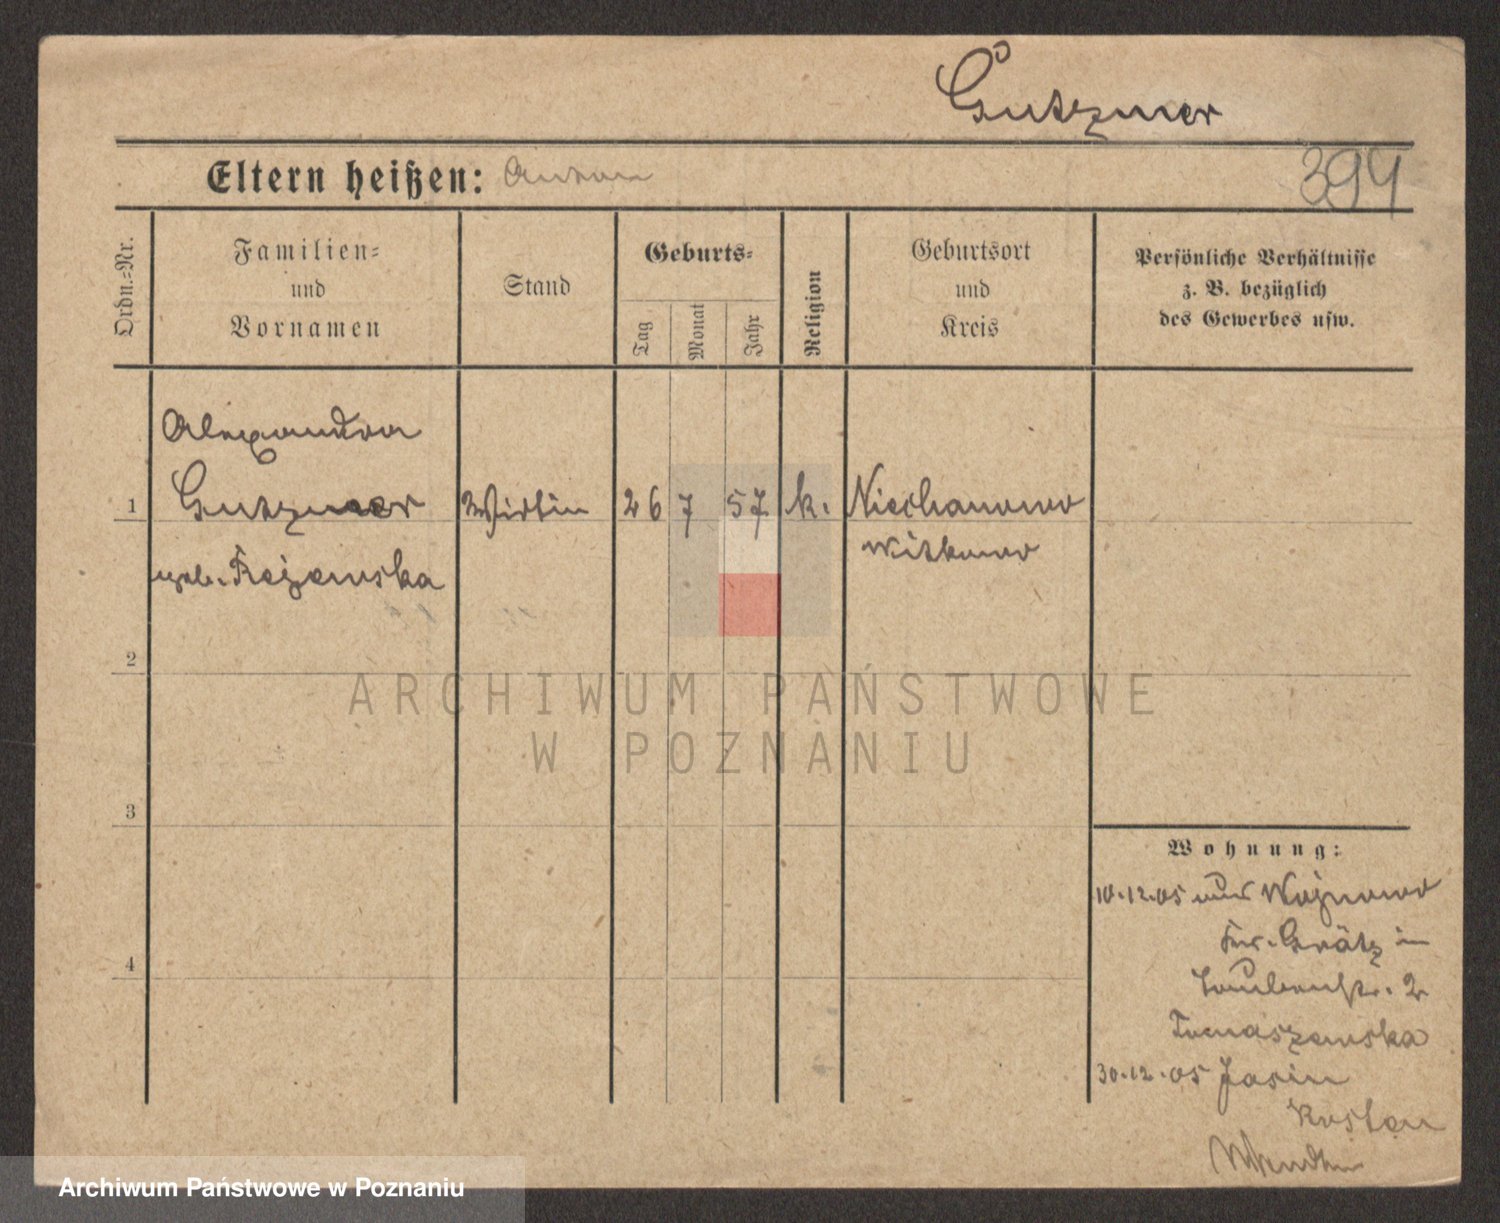 Gutzmer
Eltern heißen: Anton
394
Ordn.-Nr.
Familien-
und
Vornamen
Stand
Geburts-
Tag
Monat
Jahr
Religion
Geburtsort
und
Kreis
Persönliche Verhältnisse
z. B. bezüglich
des Gewerbes usw.
Alexandra
1 Gutzmer Wirtin 26 7 57 k. Niechanowo
Witkowo
geb.
2
ARCHIWUM PAŃSTWOWE
W POZNANIU
3
Wohnung:
10.12.05 aus Woznowo
Kr. Grätz in
Taubenstr. 2
Tomaszewska
4
30.12.05 Jasin
Kosten
Archiwum Państwowe w Poznaniu